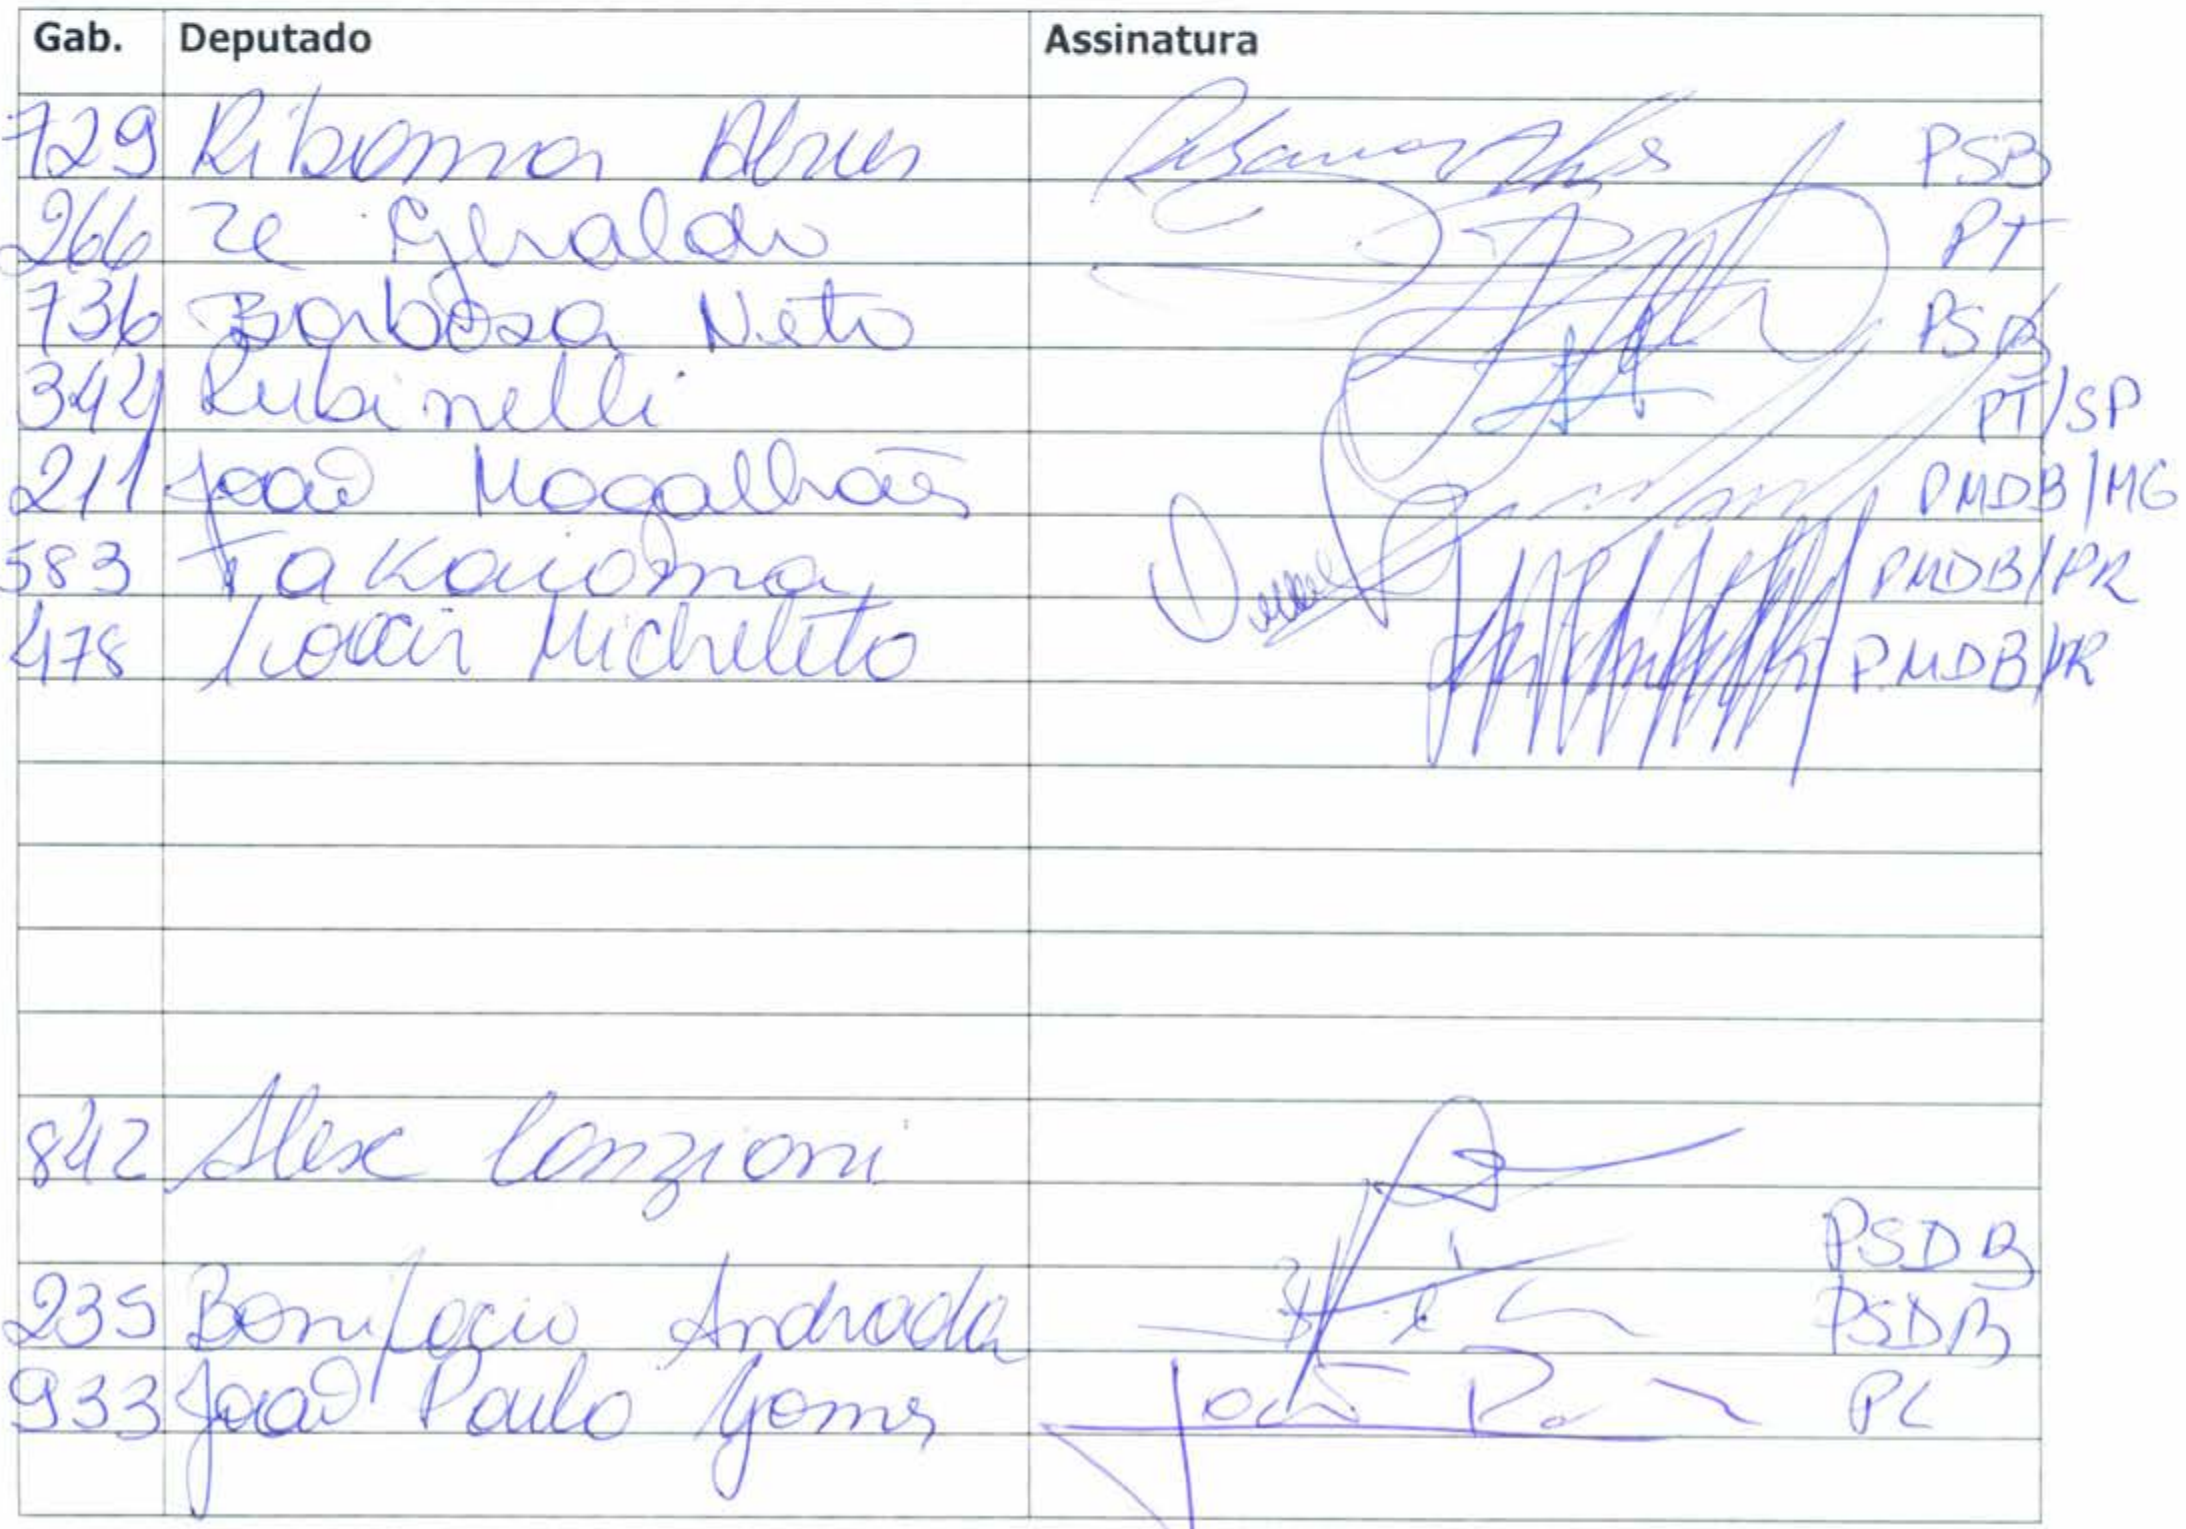 Gab. Deputado Assinatura
729 Ribamar Alves PSB
266 Ze Geraldo PT
736 Barbosa Neto PSB
344 Rubinelli PT/SP
211 João Magalhães PMDB/MG
583 Takaioma PMDB/PR
478 Moacir Micheleto PMDB/PR
842 Alex Canziani
PSDB
235 Bonifacio Andrada PSDB
933 João Paulo Gomes João PL